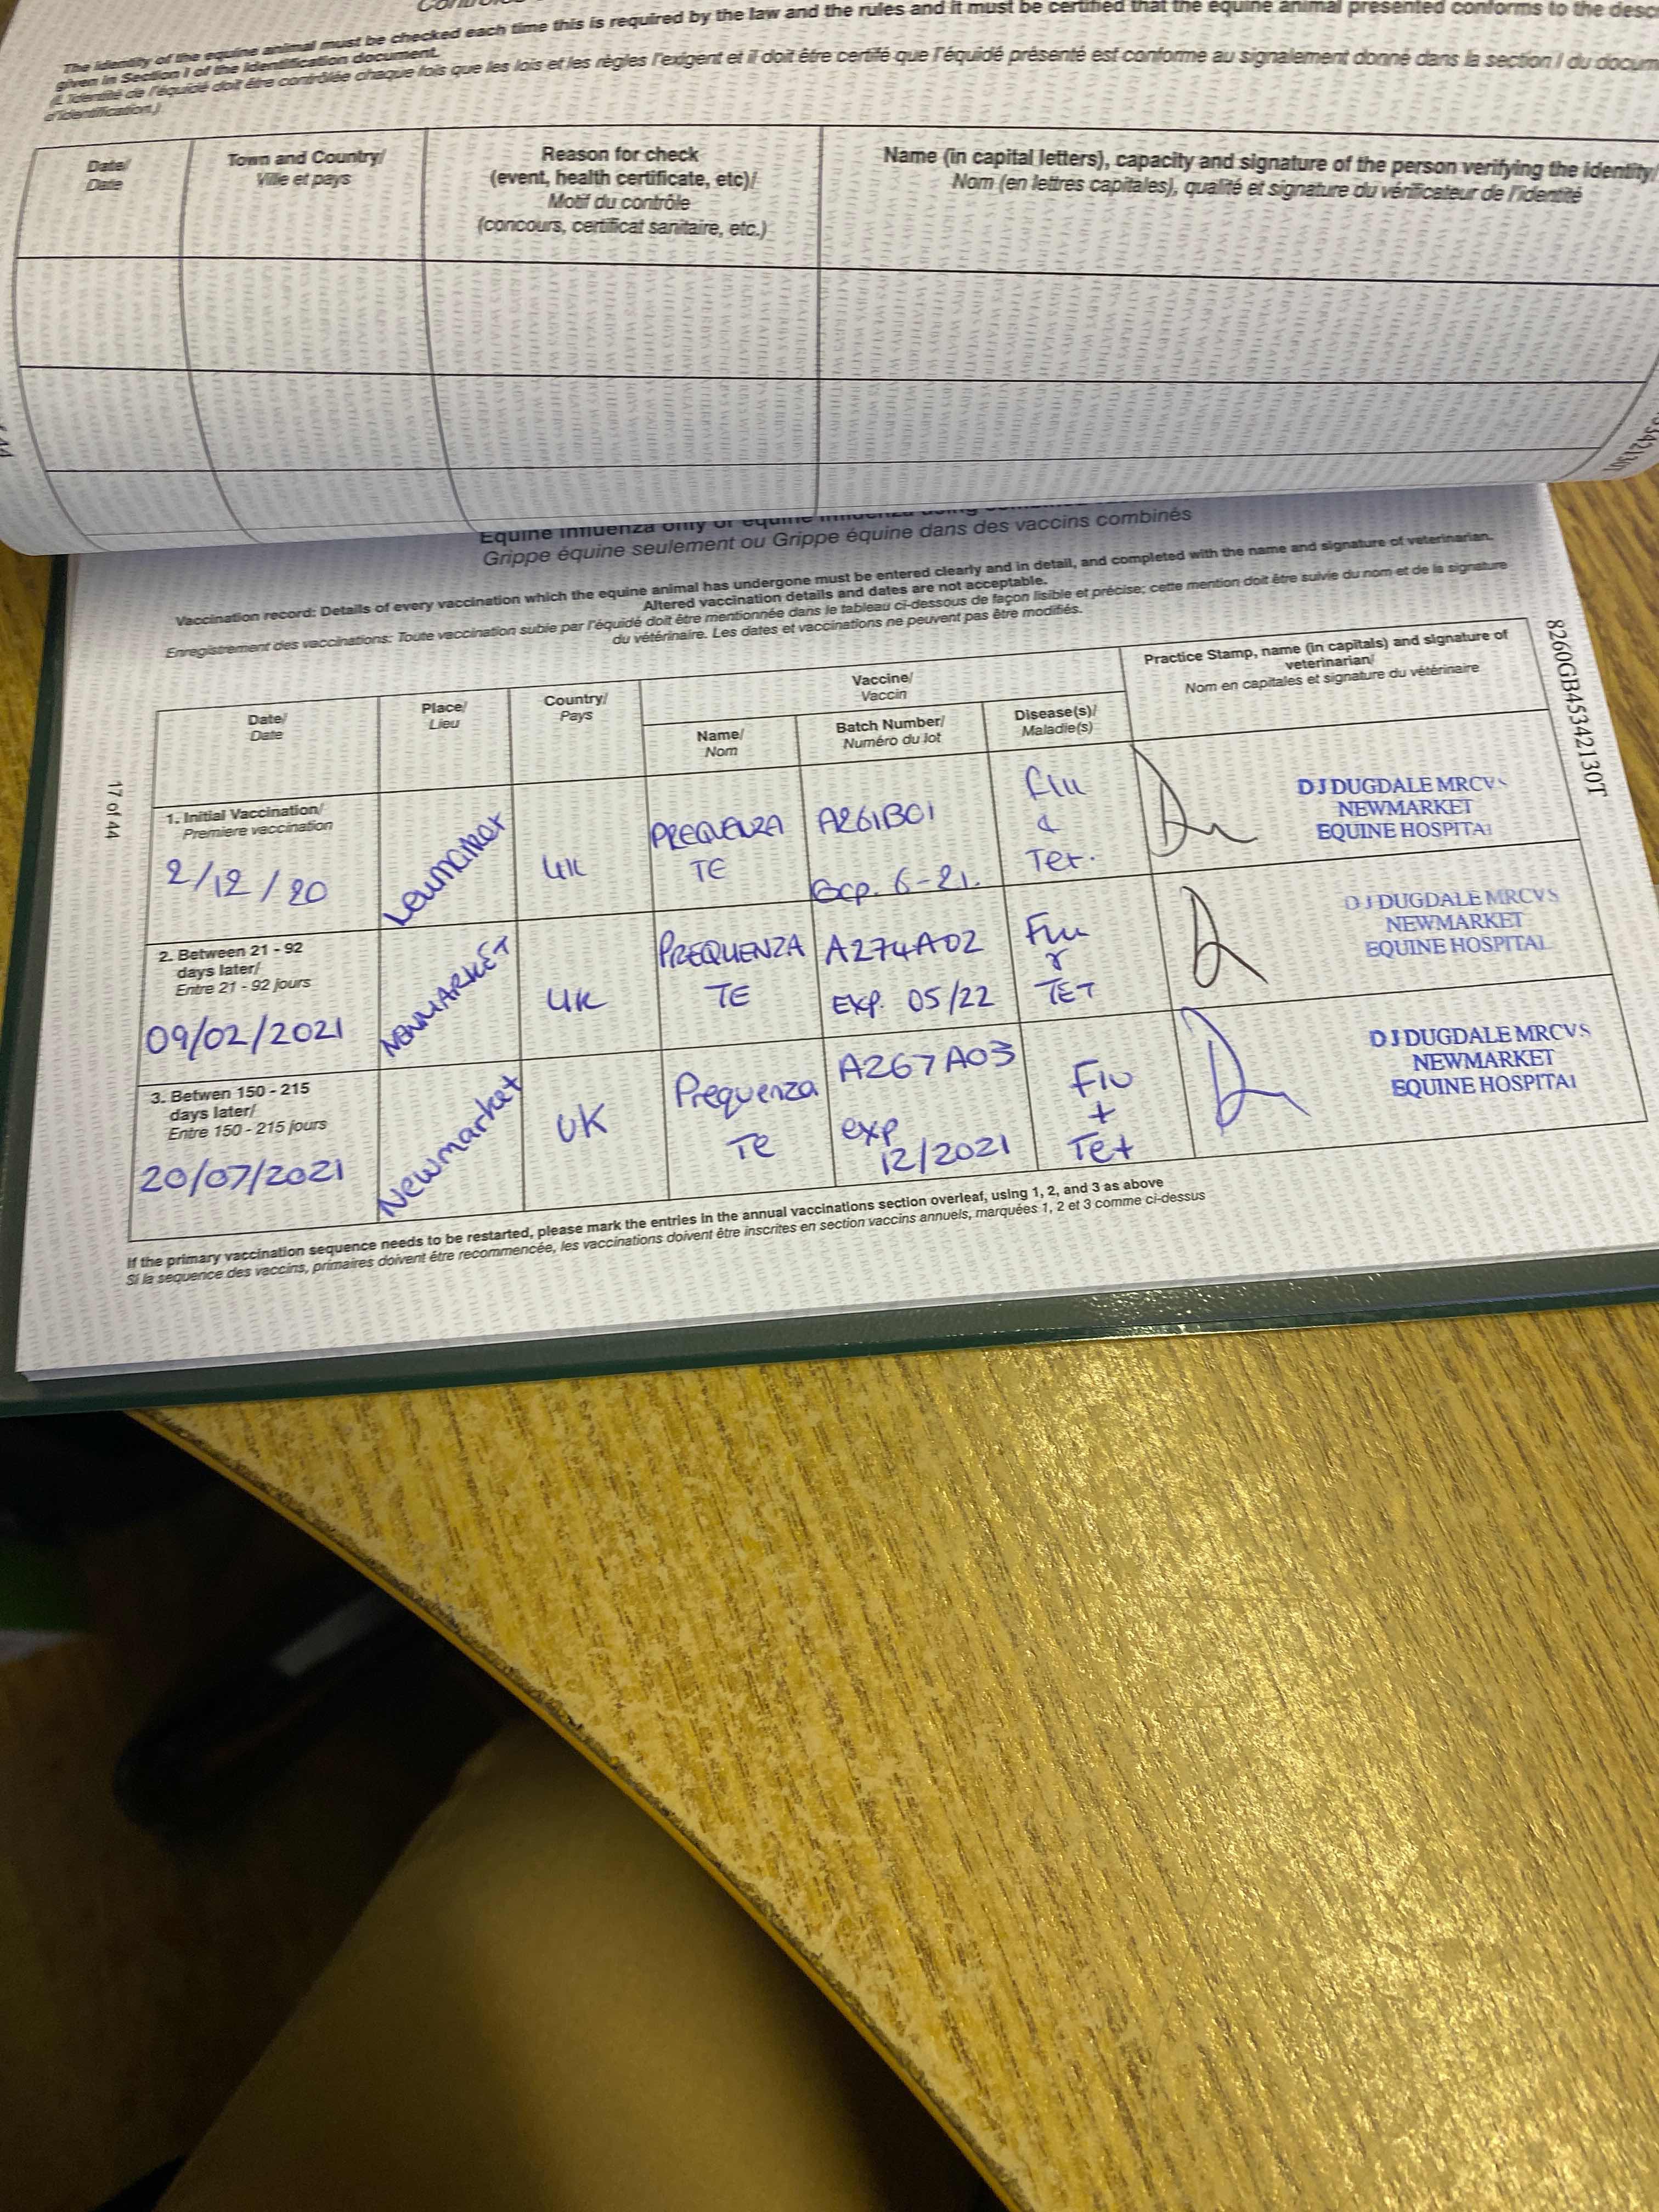 The identity of the equine animal must be checked each time this is required by the law and the rules and it must be certified that the equine animal presented conforms to the
given in Section I of the identification document.
(L'identité de l'équidé doit être contrôlée chaque fois que les lois et les règles l'exigent et il doit être certifé que l'équidé présenté est conforme au signalement donné dans la section I du
d'identification.)
Date/
Date
Town and Country/
Ville et pays
Reason for check
(event, health certificate, etc)/
Motif du contrôle
(concours, certificat sanitaire, etc.)
Name (in capital letters), capacity and signature of the person verifying the identity/
Nom (en lettres capitales), qualité et signature du vérificateur de l'identité
Equine influenza only or equine influenza using
Grippe équine seulement ou Grippe équine dans des vaccins combinés
Vaccination record: Details of every vaccination which the equine animal has undergone must be entered clearly and in detail, and completed with the name and signature of veterinarian.
Altered vaccination details and dates are not acceptable.
Enregistrement des vaccinations: Toute vaccination subie par l'équidé doit être mentionnée dans le tableau ci-dessous de façon lisible et précise; cette mention doit être suivie du nom et de la signature
du vétérinaire. Les dates et vaccinations ne peuvent pas être modifiés.
Date/
Date
Place/
Lieu
Country/
Pays
Vaccine/
Vaccin
Name/
Nom
Batch Number/
Numéro du lot
Disease(s)/
Maladie(s)
Practice Stamp, name (in capitals) and signature of
veterinarian/
Nom en capitales et signature du vétérinaire
1. Initial Vaccination/
Premiere vaccination
2/12/20
UK
PREQUENZA
TE
A261B01
Exp. 6-21.
Flu
&
Tet.
DJ DUGDALE MRCVS
NEWMARKET
EQUINE HOSPITAL
2. Between 21 - 92
days later/
Entre 21 - 92 jours
09/02/2021
NEWMARKET
UK
PREQUENZA
TE
A274A02
EXP. 05/22
Flu
&
TET
DJ DUGDALE MRCVS
NEWMARKET
EQUINE HOSPITAL
3. Betwen 150 - 215
days later/
Entre 150 - 215 jours
20/07/2021
Newmarket
UK
Prequenza
Te
A267A03
exp
12/2021
Flu
+
Tet
DJ DUGDALE MRCVS
NEWMARKET
EQUINE HOSPITAL
If the primary vaccination sequence needs to be restarted, please mark the entries in the annual vaccinations section overleaf, using 1, 2, and 3 as above
Si la sequence des vaccins, primaires doivent être recommencée, les vaccinations doivent être inscrites en section vaccins annuels, marquées 1, 2 et 3 comme ci-dessus
17 of 44
8260GB45342130T